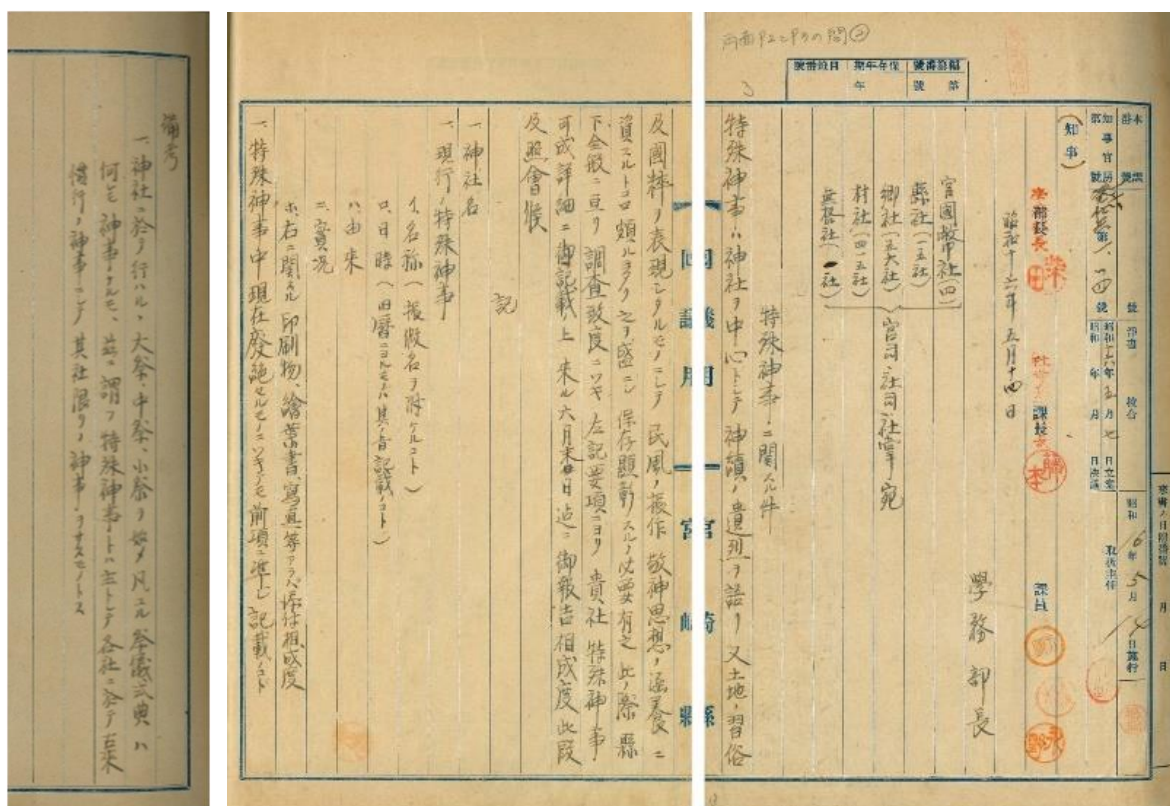 特殊神事ニ関スル件
昭和十六年五月十四日
學務部長
官國幣社(四)
縣社(一五社)
郷社(五六社)
村社(四一五社)
無格社(一社)
宮司社司社掌宛
特殊神事ハ神社ヲ中心トシテ神蹟ノ遺烈ヲ語リ又土地ノ習俗
及國粹ヲ表現シタルモノニシテ民風ノ振作敬神思想ノ涵養ニ
資スルトコロ頗ル
之ヲ盛ニシ保存顯彰スルノ必要有之此ノ際縣
下全般ニ亘リ調査致度ニツキ左記要項ニヨリ貴社特殊神事
可成詳細ニ御記載上來ル六月末日迠ニ御報告相成度此段
及照會候
記
一、神社名
一、現行ノ特殊神事
イ、名称(振假名ヲ附ケルコト)
ロ、日時(旧暦ニヨルモノハ其ノ旨記載ノコト)
ハ、由来
ニ、實况
ホ、右ニ関スル印刷物、繪葉書、寫真等アラバ添付相成度
一、特殊神事中現在廢絶セルモノニツキテモ前項ニ準ジ記載ノコト
回議用
宮崎縣
備考
一、神社ニ於テ行ハル、大祭、中祭、小祭ヲ始メ凡ユル祭儀式典ハ
何レモ神事ナルモ、茲ニ謂フ特殊神事トハ主トシテ各社ニ於テ古来
慣行ノ神事ニシテ其社限リノ神事ヲサスモノトス